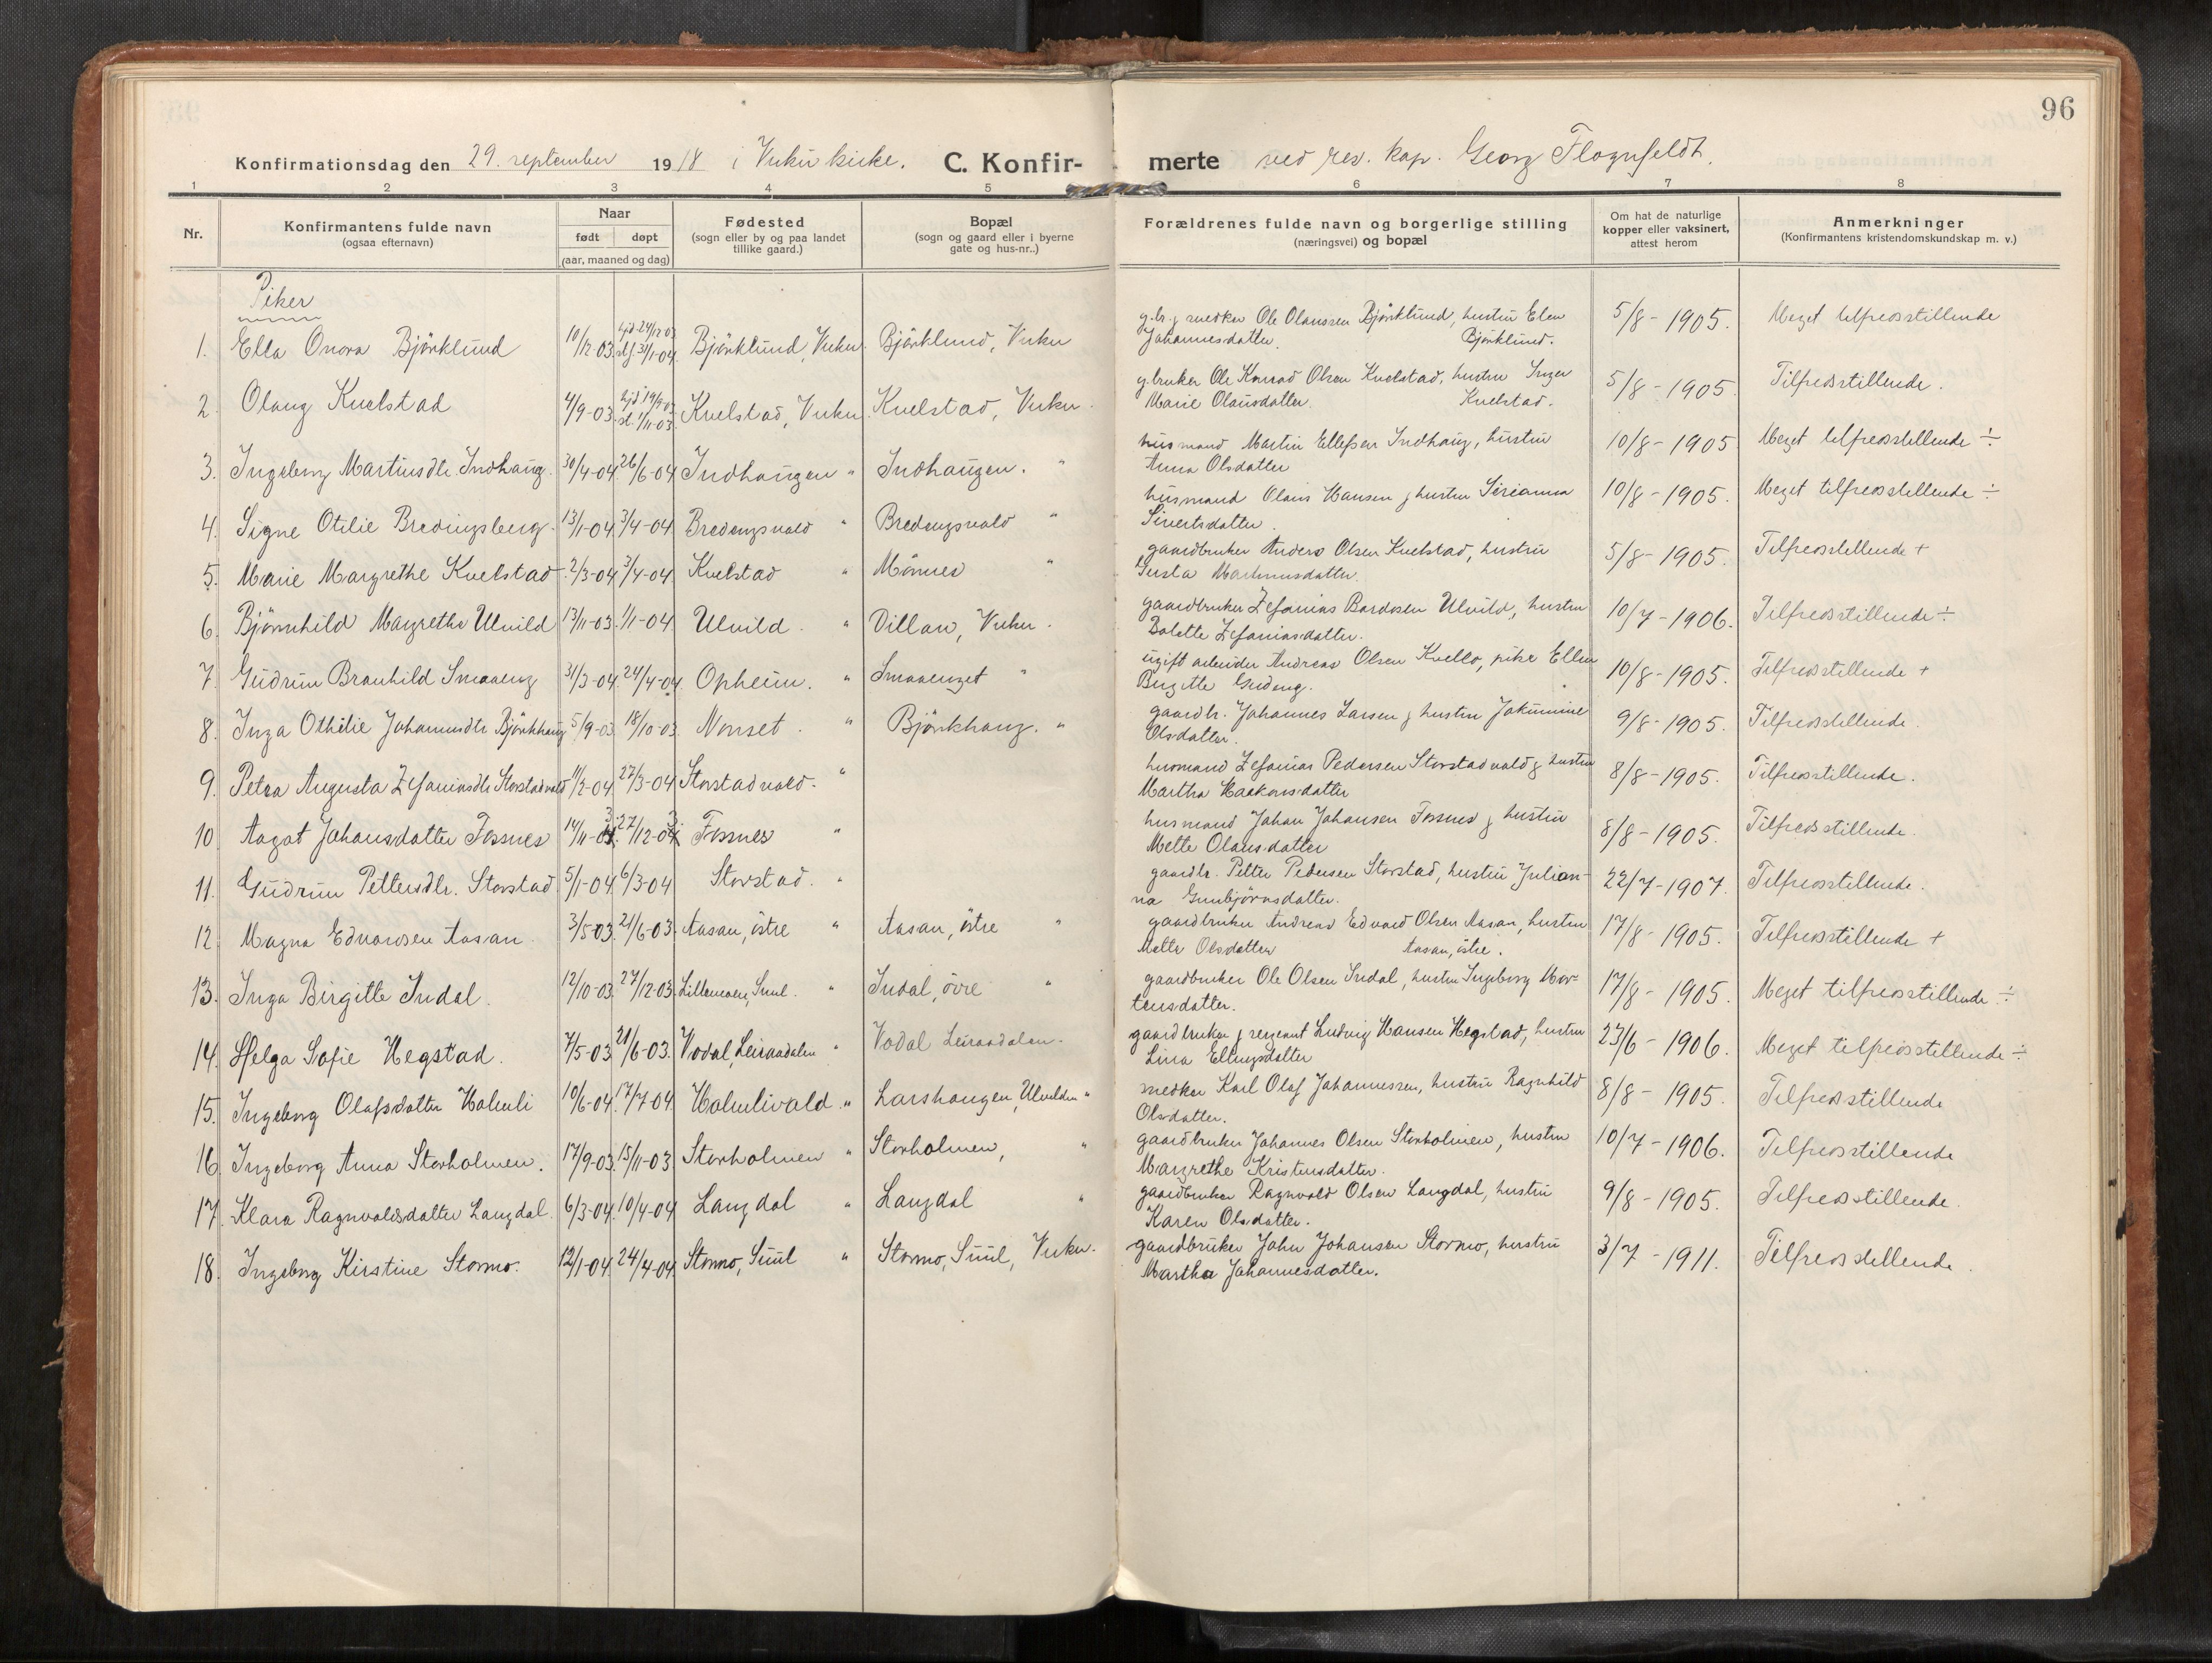 96
Konfirmationsdag den 29. september 1918 i Vuku kirke. C. Konfir- merte ved res. kap. Georg Flognfeldt.
1 2 3 4 5 6 7 8
Nr.
Konfirmantens fulde navn
(ogsaa efternavn)
Naar
født døpt
(aar, maaned og dag)
Fødested
(sogn eller by og paa landet
tillike gaard.)
Bopæl
(sogn og gaard eller i byerne
gate og hus-nr..)
Forældrenes fulde navn og borgerlige stilling
(næringsvei) og bopæl
Om hat de naturlige
kopper eller vaksinert,
attest herom
Anmerkninger
(Konfirmantens kristendomskundskap m. v.)
Piker
1. Ella Onora Bjørklund 10/12-03 hjd 24/12-03 st. 31/1-04 Bjørklund, Vuku Bjørklund, Vuku g.br. j snedker Ole Olaussen Bjørklund, hustru Elen 5/8-1905. Meget tilfredsstillende
Johannesdatter. Bjørklund.
2. Olaug Kvelstad 4/9-03 hjd 19/9-03 st. 1/11-03 Kvelstad, Vuku Kvelstad, Vuku. g.bruker Ole Konrad Olsen Kvelstad, hustru Inger 5/8-1905 Tilfredsstillende.
Marie Olausdatter. Kvelstad.
3. Ingeborg Martinsdtr Indhaug. 30/4-04 26/6-04 Indhaugen " Indhaugen. " husmand Martin Ellefsen Indhaug, hustru 10/8-1905 Meget tilfredsstillende ÷
Anna Olsdatter
4. Signe Otilie Bredingsberg. 13/1-04 3/4-04 Bredingsvald " Bredingsvald " husmand Olaus Hansen j hustru Sirianna 10/8-1905. Meget tilfredsstillende ÷
Sivertsdatter.
5. Marie Margrethe Kvelstad. 2/3-04 3/4-04 Kvelstad " Mönnes " gaardbruker Anders Olsen Kvelstad, hustru 5/8-1905. Tilfredsstillende +
Gusta Martinusdatter.
6. Bjørnhild Margrethe Ulvild 13/11-03. 1/1-04 Ulvild. " Dillan, Vuku. gaardbruker Zefanias Bardosen Ulvild, hustru 10/7-1906. Tilfredsstillende ÷
Bolette Zefaniasdatter.
7. Gudrun Branhild Smaaeng 31/3-04. 24/4-04 Opheim. " Smaaenget " ugift arbeider Andreas Olsen Kvello, pike Ellen 10/8-1905. Tilfredsstillende +
Birgitte Grudeng.
8. Inga Othilie Johannesdtr Bjørkhaug 5/9-03 18/10-03. Nonset. " Bjørkhaug. " gaardbr. Johannes Larsen j hustru Jokumine 9/8-1905. Tilfredsstillende.
Olsdatter.
9. Petra Augusta Zefaniasdtr Storstadvald 11/2-04. 27/3-04 Storstadvald. " husmand Zefanias Pedersen Storstadvald j hustru 8/8-1905. Tilfredsstillende.
Martha Haakonsdatter
10 Aagot Johansdatter Fossnes 14/11-03. 27/12-03 Fossnes " husmand Johan Johansen Fossnes j hustru 8/8-1905. Tilfredsstillende.
Mette Olausdatter
11. Gudrun Pettersdtr. Storstad 5/1-04. 6/3-04 Storstad. " gaardbr. Petter Pedersen Storstad, hustru Julian- 22/7-1907. Tilfredsstillende.
na Gunbjørnsdatter.
12. Magna Edvardsen Aasan 3/5-03. 21/6-03. Aasan, östre " Aasan, östre " gaardbruker Andreas Edvard Olsen Aasan, hustru 17/8-1905. Tilfredsstillende +
Mette Olsdatter Aasan, östre.
13. Inga Birgitte Indal. 12/10-03. 27/12-03. Lillemoen, Suul. " Indal, övre " gaardbruker Ole Olsen Indal, hustru Ingeborg Mor- 17/8-1905. Meget tilfredsstillende ÷
tensdatter.
14. Helga Sofie Hegstad. 7/5-03 21/6-03. Vodal, Leiraadalen " Vodal Leiraadalen. gaardbruker j sergeant Ludvig Hansen Hegstad, hustru 23/6-1906. Meget tilfredsstillende ÷
Lina Ellingsdatter
15. Ingeborg Olafsdatter Holmli 10/6-04. 17/7-04. Holmlivald. " Larshaugen, Ulvilden " snedker Karl Olaf Johannessen, hustru Ragnhild 8/8-1905. Tilfredsstillende
Olsdatter.
16. Ingeborg Anna Storholmen. 17/9-03. 15/11-03 Storholmen " Storholmen, " gaardbruker Johannes Olsen Storholmen, hustru 10/7-1906. Tilfredsstillende
Margrethe Kristensdatter.
17. Klara Ragnvaldsdatter Langdal. 6/3-04. 10/4-04 Langdal " Langdal " gaardbruker Ragnvald Olsen Langdal, hustru 9/8-1905. Tilfredsstillende.
Karen Olsdatter.
18. Ingeborg Kirstine Stormo. 12/1-04. 24/4-04. Stormo, Suul " Stormo, Suul, Vuku. gaardbruker John Johansen Stormo, hustru 3/7-1911. Tilfredsstillende.
Martha Johannesdatter.